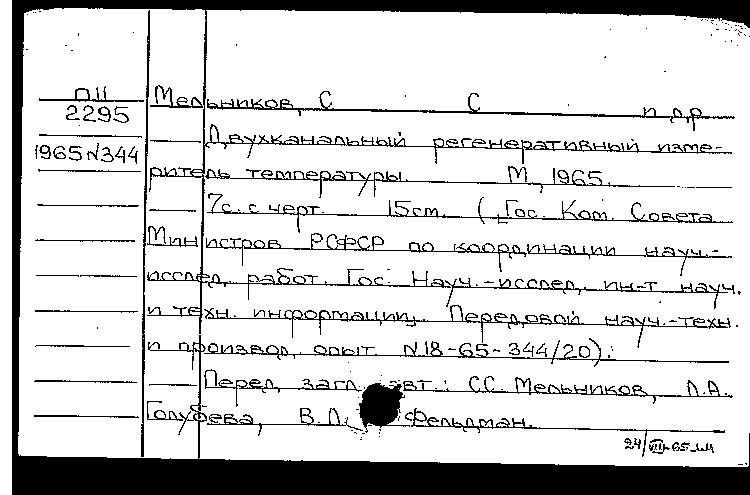 П11
2295
1965 N344
Мельников, С С и др
Двухканальный регенеративный изме-
ритель температуры. М., 1965.
7с. с черт. 15см. (Гос. Ком. Совета
Министров РСФСР по координации науч.-
исслед. работ. Гос. Науч.-исслед. ин-т науч.
и техн. информации. Передовой науч.-техн.
и производ. опыт. N18-65-344/20).
Перед загл. авт.: С.С. Мельников, Л.А.
Голубева, В.Л. Фельдман.
24/VIII-65